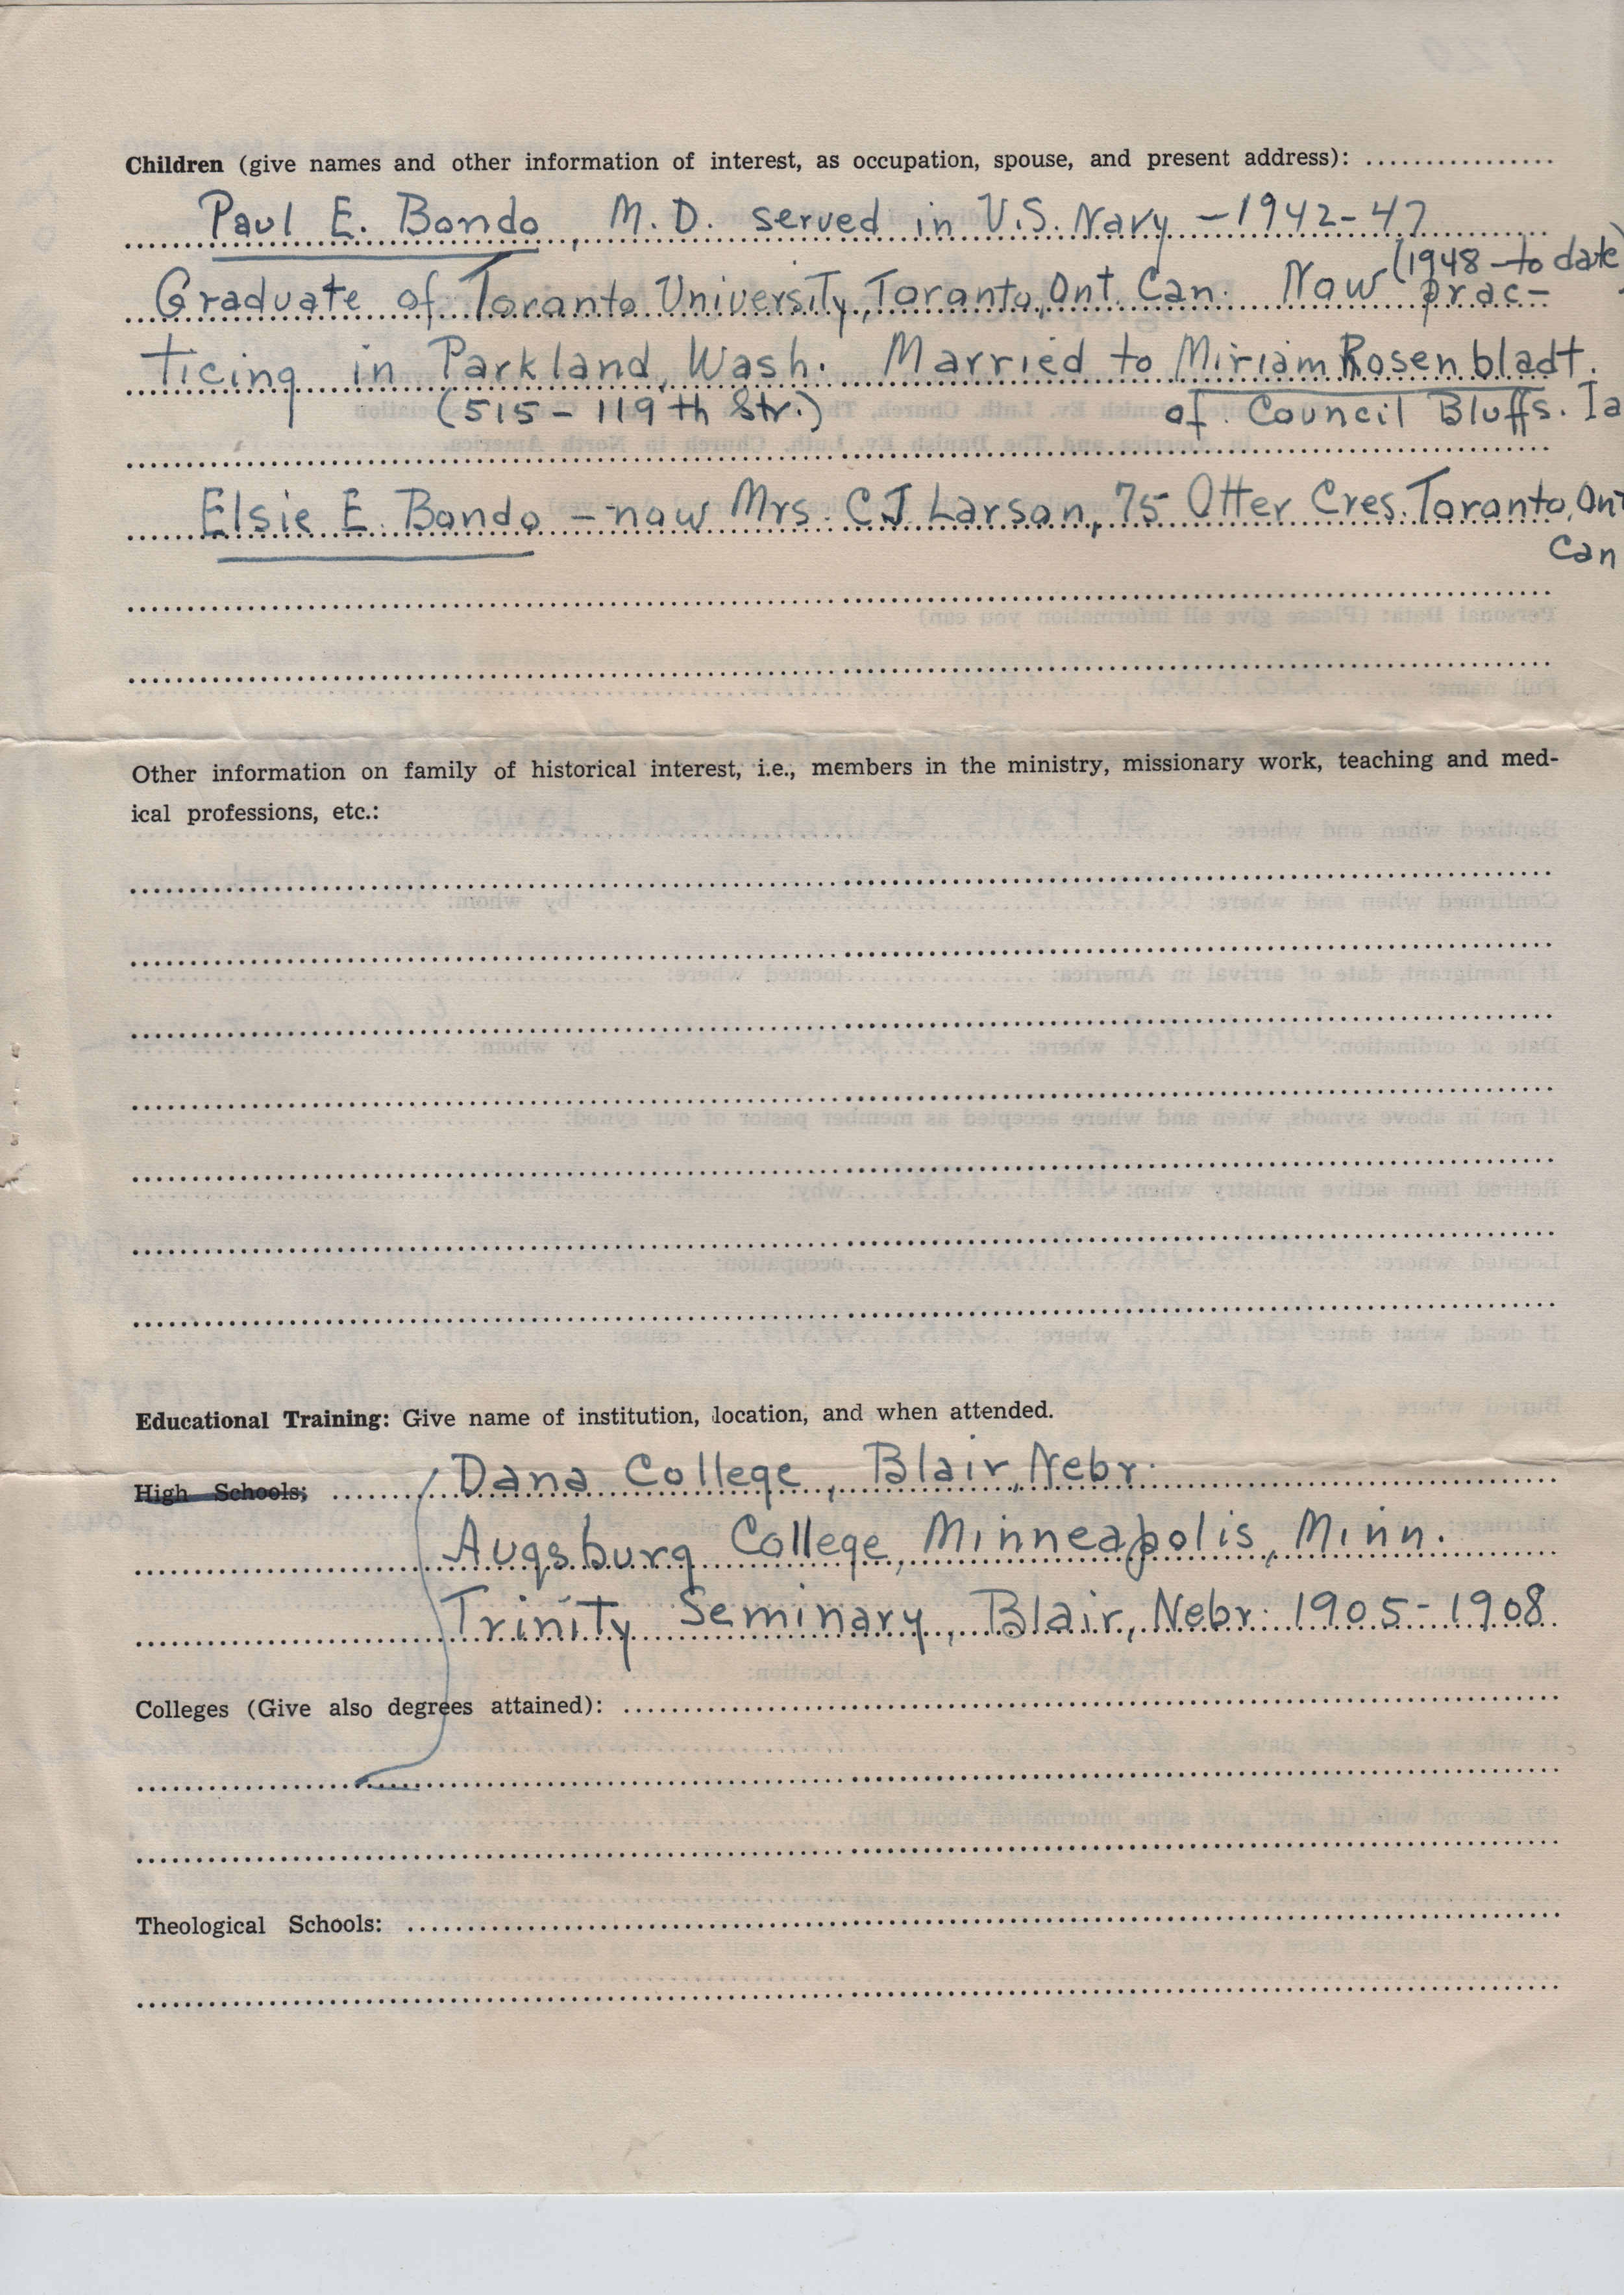 Children (give names and other information of interest, as occupation, spouse, and present address):
Paul E. Bondo, M.D. served in U.S. Navy - 1942-47
(1948 - to date)
Graduate of Toronto University, Toronto, Ont. Can. Now prac-
ticing in Parkland, Wash. Married to Miriam Rosenbladt.
(515 - 119th Str.) of Council Bluffs. Ia
Elsie E. Bondo - now Mrs. CJ Larson, 75 Otter Cres. Toronto, Ont
Can
Other information on family of historical interest, i.e., members in the ministry, missionary work, teaching and med-
ical professions, etc.:
Educational Training: Give name of institution, location, and when attended.
High Schools; Dana College, Blair, Nebr.
Augsburg College, Minneapolis, Minn.
Trinity Seminary, Blair, Nebr. 1905-1908
Colleges (Give also degrees attained):
Theological Schools: